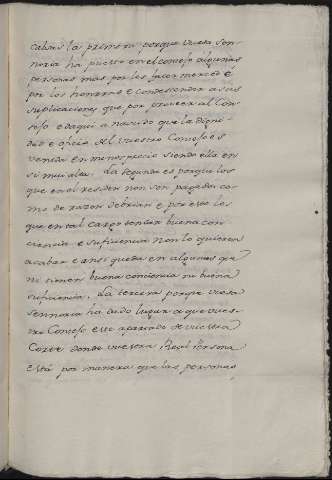 cabsas la primera porque vuestra sen-
noria ha puesto en el consejo algunas
personas mas por les facer merced e
por los honrrar e condescender a sus
suplicaciones que por proveer al Con-
sejo e daqui a nascido que la digni-
dad e oficio del vuestro Consejo es
venida en menosprecio siendo ella en
si muy alta. La segunda es porque los
que en el residen non son pagados co-
mo de razon debrian e por esto los
que en tal cargo tendrian buena con-
ciencia e suficiencia non lo quieren
acabar e ansi queda en algunos que
ni tienen buena conciencia ni buena
suficiencia. La tercera porque vuestra
sennoria ha dado lugar a que vues-
tro Consejo este apartado de vuestra
Corte donde vuestra Real Persona
está por manera que las personas